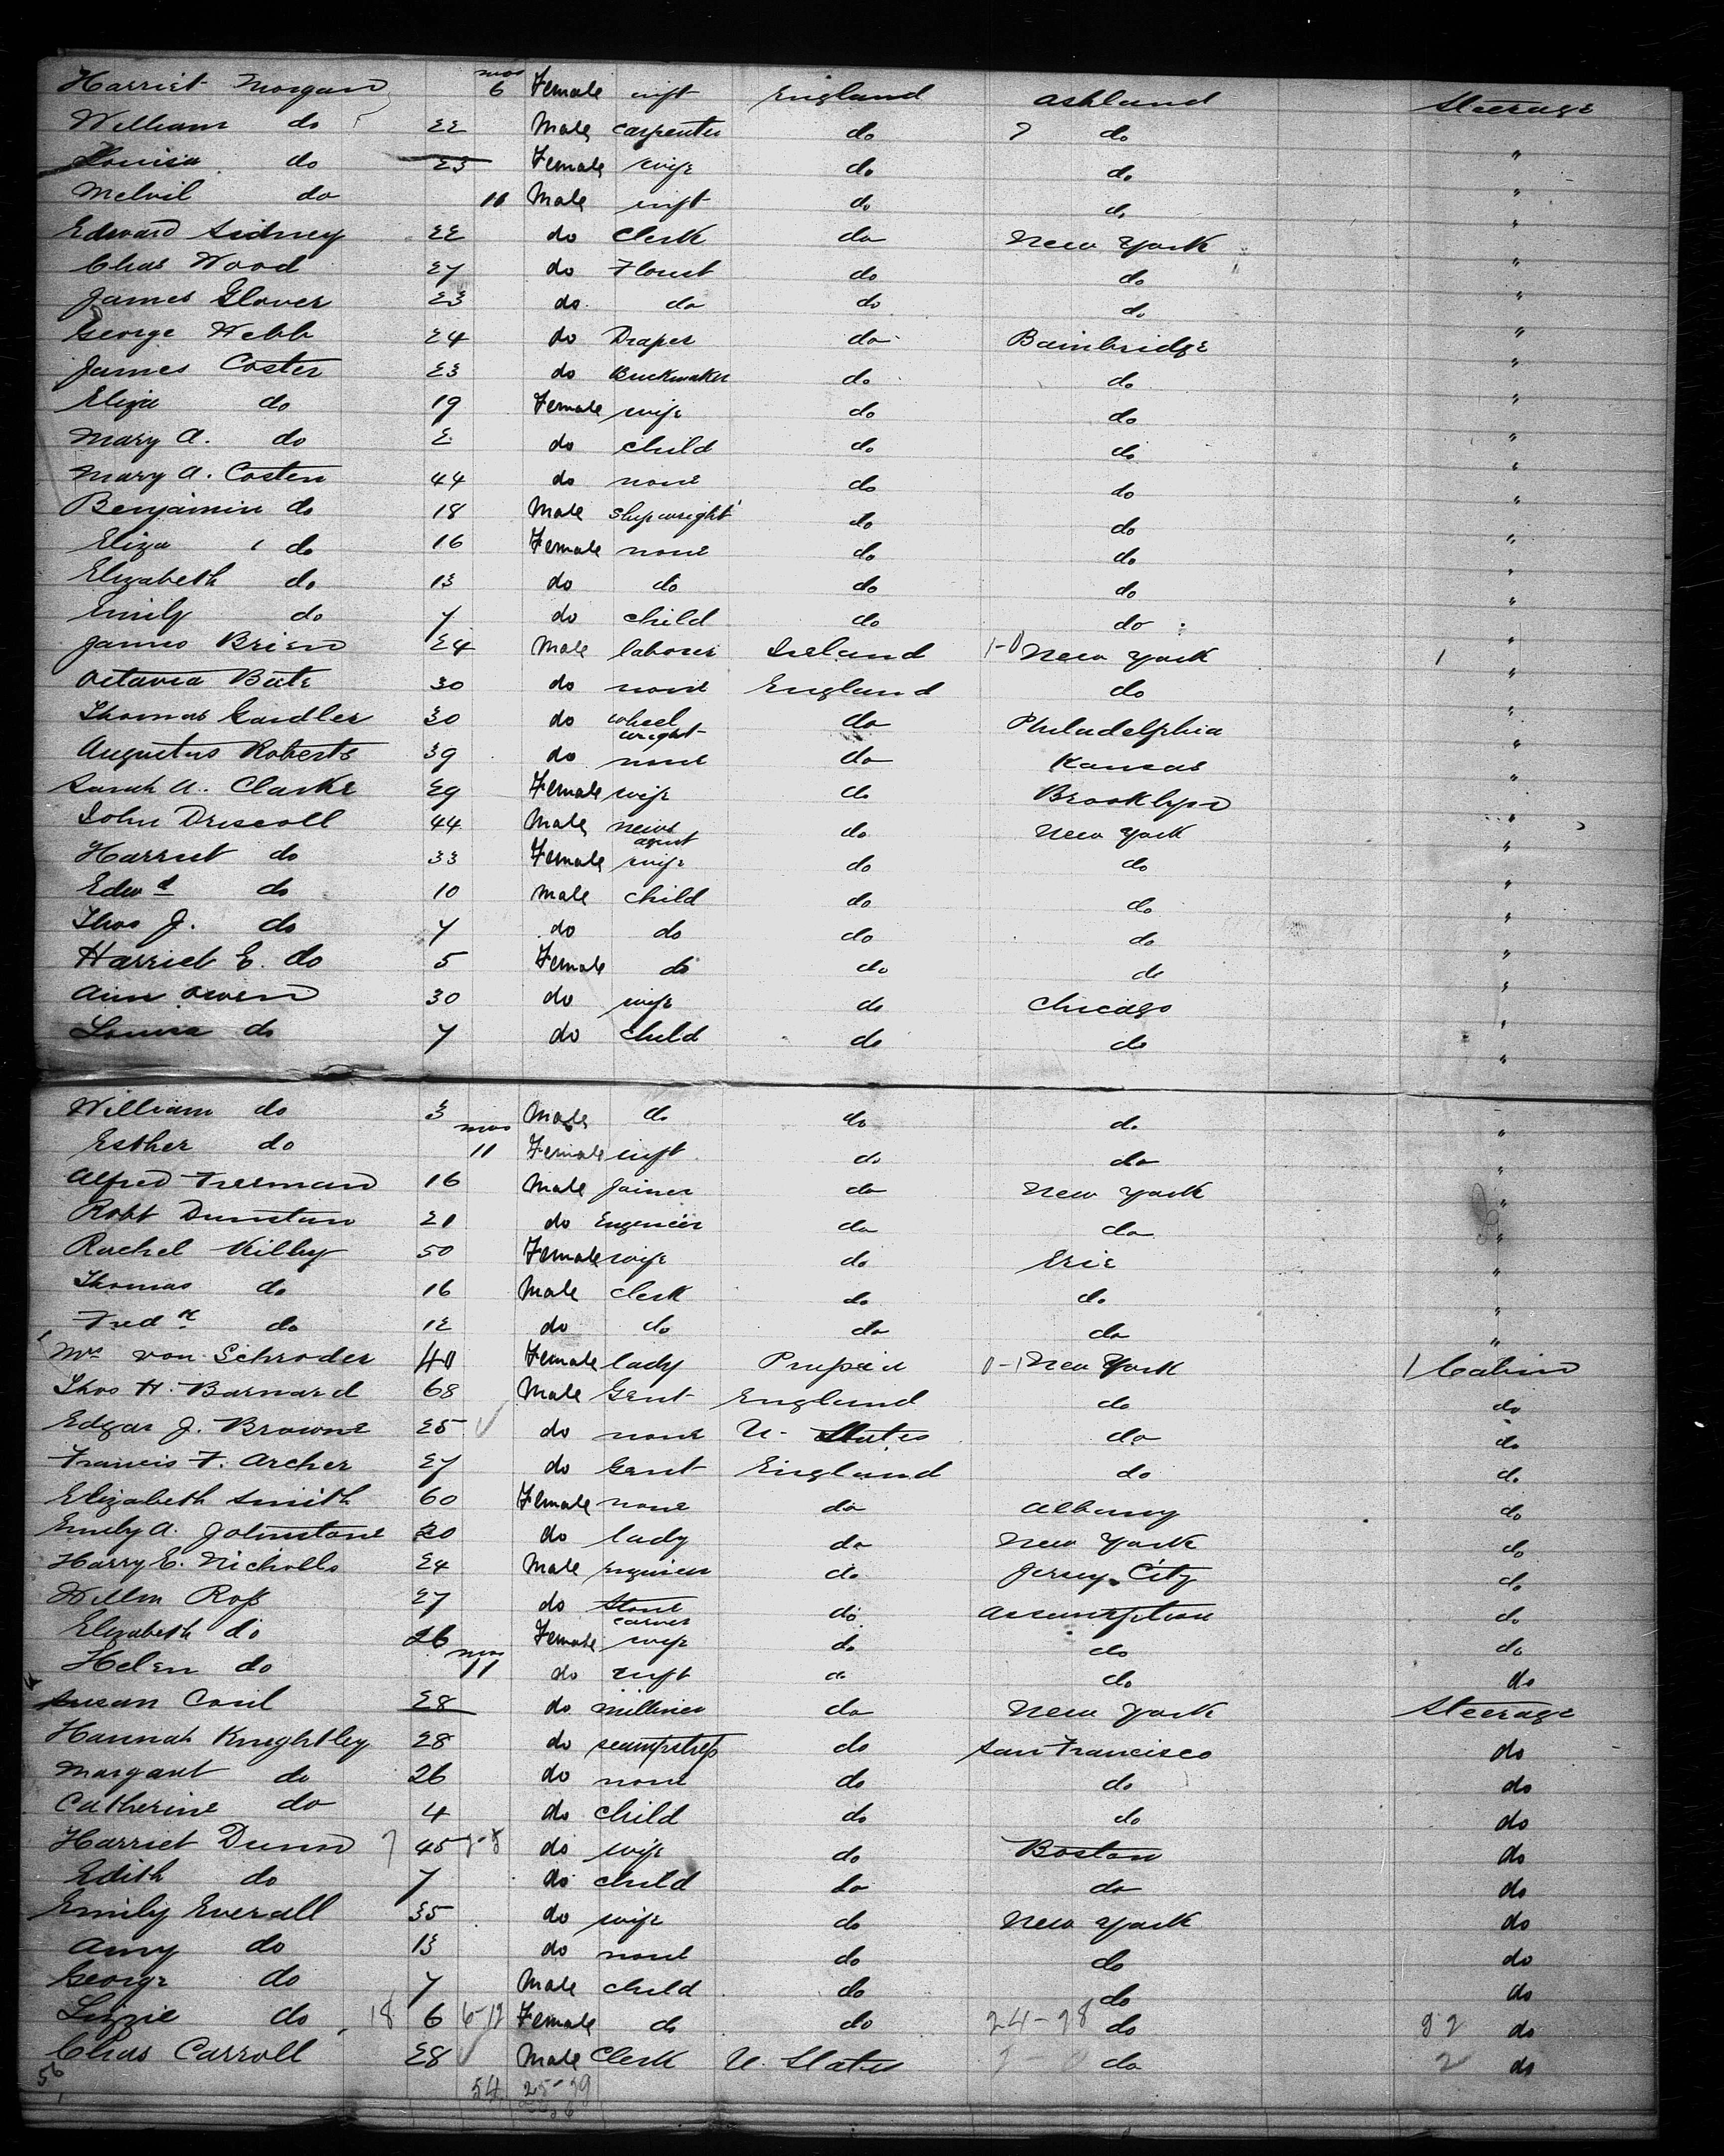 Harriet Morgan mos 6 Female inft England Ashland Steerage
William do 22 Male Carpenter do do "
Louisa do 23 Female wife do do "
Melvil do 11 Male inft do do "
Edward Sidney 22 do Clerk do New York "
Chas Wood 27 do Florist do do "
James Glover 23 do do do do "
George Webb 24 do Draper do Bainbridge "
James Coster 23 do Brickmaker do do "
Eliza do 19 Female wife do do "
Mary A. do 2 do child do do "
Mary A. Costen 44 do none do do "
Benjamin do 18 Male Shipwright do do "
Eliza do 16 Female none do do "
Elizabeth do 13 do do do do "
Emily do 7 do child do do "
James Brien 24 Male laborer Ireland 1-0 New York 1 "
Octavia Bate 30 do none England do "
Thomas Gardler 30 do wheel wright do Philadelphia "
Augustus Roberts 39 do none do Kansas "
Sarah A. Clarke 29 Female wife do Brooklyn "
John Driscoll 44 Male news agent do New York "
Harriet do 33 Female wife do do "
Edwd do 10 Male child do do "
Thos J. do 7 do do do do "
Harriet E. do 5 Female do do do "
Ann Owen 30 do wife do Chicago "
Louisa do 7 do child do do "
William do 3 Male do do do "
Esther do mos 11 Female inft do do "
Alfred Freeman 16 Male Joiner do New York "
Robt Dunstan 21 do Engineer do do "
Rachel Kilby 50 Female wife do Erie "
Thomas do 16 Male Clerk do do "
Fredk do 12 do do do do "
Mrs von Schroder 40 Female lady Prussia 0-1 New York 1 Cabin
Thos H. Barnard 68 Male Gent England do do
Edgar J. Browne 25 do none U. States do do
Francis F. Archer 27 do Gent England do do
Elizabeth Smith 60 Female none do Albany do
Emily A. Johnstone 20 do lady do New York do
Harry E. Nicholls 24 Male Engineer do Jersey City do
Willm Ross 27 do Stone carver do Assumption do
Elizabeth do 26 Female wife do do do
Helen do mos 11 do inft do do do
Susan Coril 28 do milliner do New York Steerage
Hannah Knightley 28 do seampstress do San Francisco do
Margaret do 26 do none do do do
Catherine do 4 do child do do do
Harriet Dunn 45 do wife do Boston do
Edith do 7 do child do do do
Emily Everall 35 do wife do New York do
Amy do 13 do none do do do
George do 7 Male child do do do
Lizzie do 18 6 6-12 Female do do 24-28 do do
Chas Carroll 28 Male Clerk U. States do 2 do
54 25-29